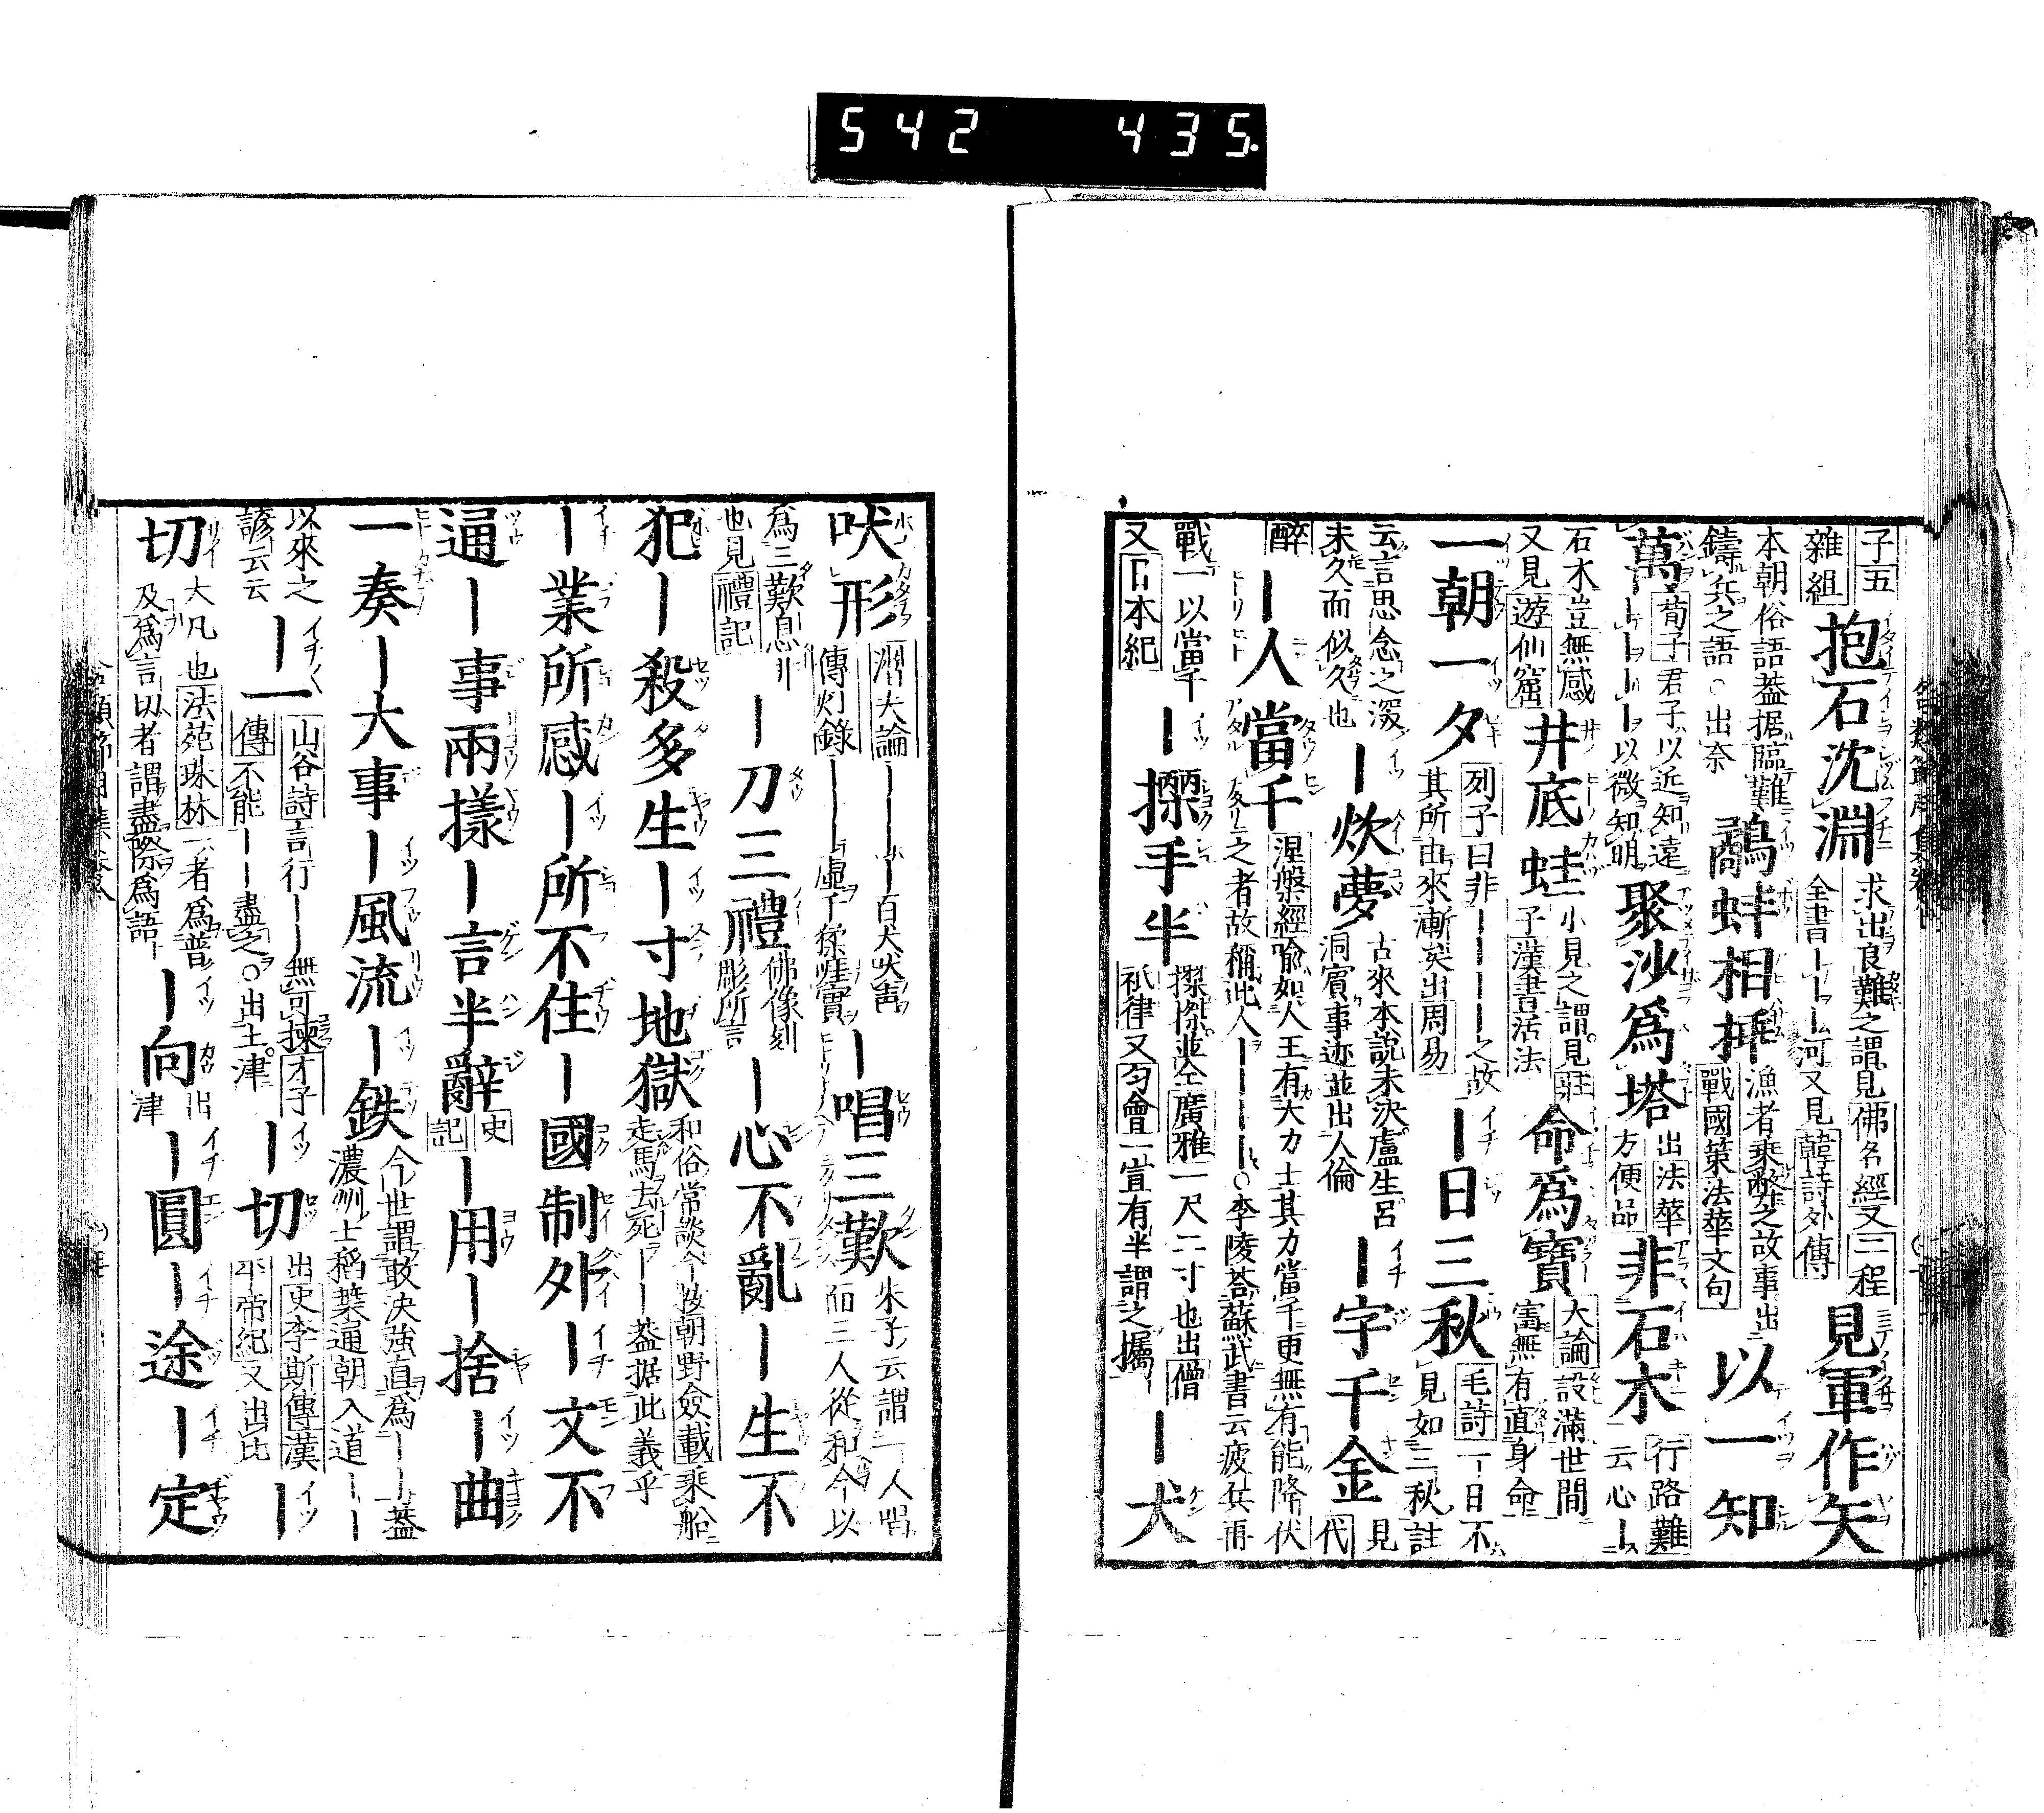 542 435.
子五
雜組
抱石沈淵
求出良難之謂見佛名經又二程
全書一ーーー河又見韓詩外傳
見軍作矢
本朝俗語蓋据臨難
鑄兵之語○出奈
鷸蚌相挵
漁者乗弊之故事出
戰國策法華文句
以一知
萬
荀子君子以近知遠
ーーーー以微知明
聚沙為塔
出法華
方便品
非石木
行路難
云心ー
石木豈無感
又見遊仙窟
井底蛙
小見之謂見莊
子漢書活法
命為寶
大論設滿世間
富無有直身命
一朝一夕
列子曰非ーーーー之故
其所由來漸矣出周易
ー日三秋
毛詩一日不
見如三秋註
云言思念之深
未久而似久也
ー炊夢
古來本說未決盧生呂
洞賓事迹並出人倫
ー字千金
見
代
醉
ー人當千
涅槃經喩如人王有大力士其力當千更無有能降伏
之者故稱此人ーーーー○李陵荅蘇武書云疲兵再
戰一以當千
又日本紀
ー搩手半
搩磔並仝廣雅一尺二寸也出僧
祇律又匀會一宣有半謂之攜
ー犬
吠形
潛夫論ーーーー百犬吠声
傳灯錄ーー虛千猱啀實
ー唱三歎
朱子云謂一人唱
而三人從和今以
為三歎息非
也見禮記
ー刀三禮
佛像刻
彫所言
ー心不亂ー生不
犯ー殺多生ー寸地獄
和俗常談今按朝野僉載乘船
走馬去死ーー蓋据此義乎
ー業所感ー所不住ー國制外ー文不
通ー事兩樣ー言半辭
史
記
ー用ー捨ー曲
一奏ー大事ー風流ー鉄
今世謂敢決強直為ーー蓋
濃州士稻葉通朝入道ーー
以來之
諺云云
ー一
山谷詩言行ーー無可揀才子
傳不能ーー盡之○出土津
ー切
出史李斯傳漢
平帝紀又出比
ー
切
大凡也法苑珠林一者為普
及為言以者謂盡際為語
ー向
出
津
ー圓ー途ー定